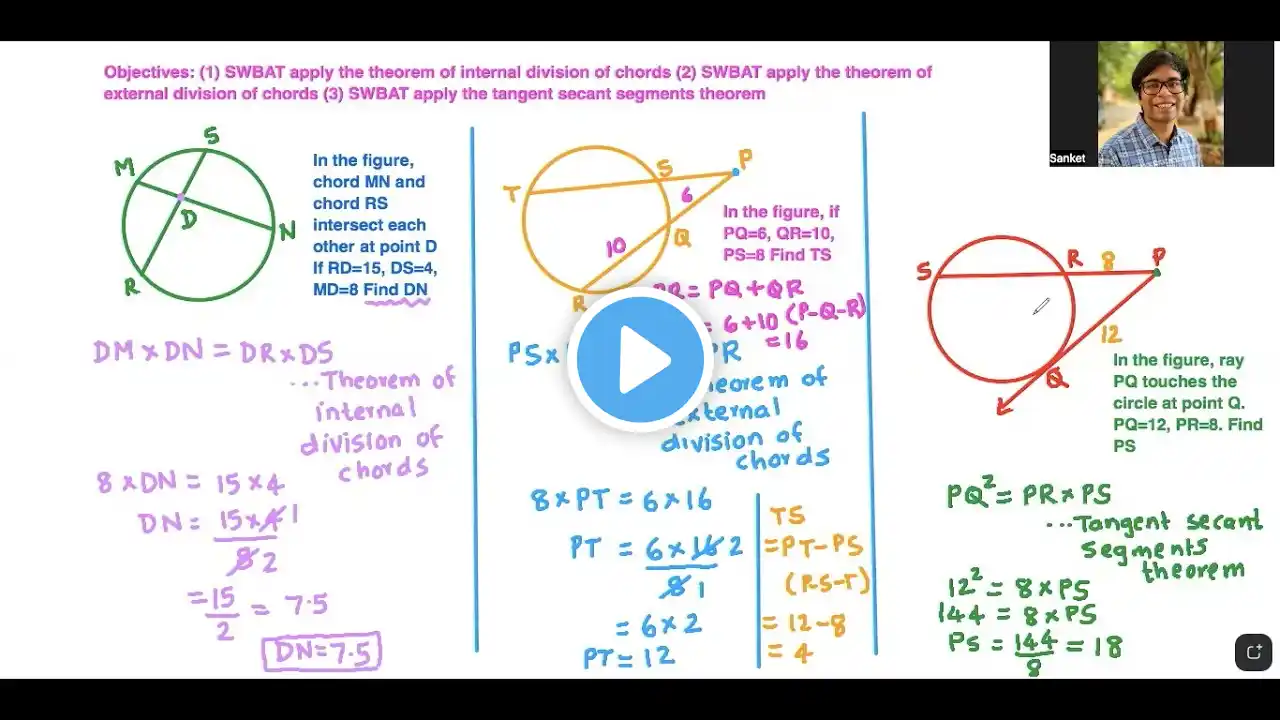 Objectives: (1) SWBAT apply the theorem of internal division of chords (2) SWBAT apply the theorem of
external division of chords (3) SWBAT apply the tangent secant segments theorem
Sanket
S
M
D
N
R
In the figure,
chord MN and
chord RS
intersect each
other at point D
If RD=15, DS=4,
MD=8 Find DN
DM×DN = DR×DS
...Theorem of
internal
division of
chords
8×DN = 15×4
DN = 15×4 1
8 2
=15
2
= 7.5
DN=7.5
T
S
P
6
Q
10
R
In the figure, if
PQ=6, QR=10,
PS=8 Find TS
= PQ+QR
= 6+10 (P-Q-R)
=16
PS×
PR
of
external
division of
chords
8×PT = 6×16
PT = 6×16 2
8 1
= 6×2
PT = 12
TS
=PT-PS
(P-S-T)
= 12-8
= 4
S
R
8
P
12
Q
In the figure, ray
PQ touches the
circle at point Q.
PQ=12, PR=8. Find
PS
PQ² = PR×PS
...Tangent secant
segments
theorem
12² = 8×PS
144 = 8×PS
PS = 144 = 18
8